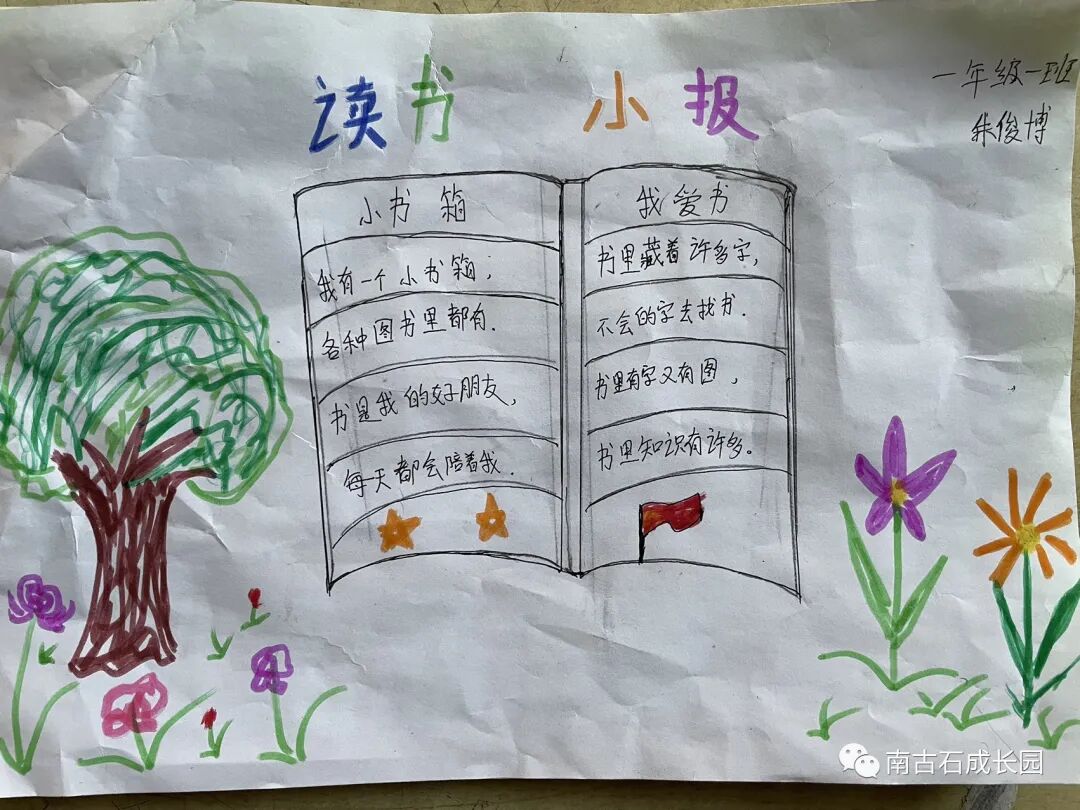 读书 小报
一年级一班
朱俊博
小书箱
我有一个小书箱;
各种图书里都有.
书是我的好朋友,
每天都会陪着我.
我爱书
书里藏着许多字,
不会的字去找书.
书里有字又有图,
书里知识有许多。
南古石成长园